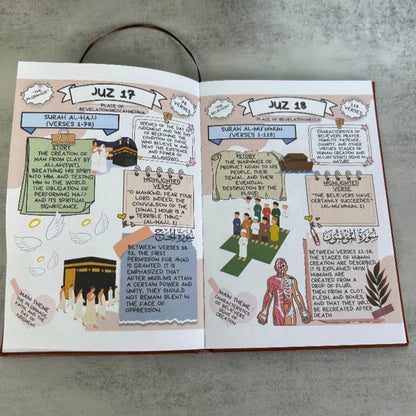 JUZ 17
"THE PILGRIMAGE"
78 VERSES
PLACE OF
REVELATION:MECCA/MEDINA
SURAH AL-HAJJ
(VERSES 1-78)
SCENES OF THE DAY OF
JUDGMENT AND THE
CONDITION OF THOSE
WHO BELIEVE IN AND
STORY
THE CREATION OF
MAN FROM CLAY BY
ALLAH(SWT),
BREATHING HIS SPIRIT
INTO HIM, AND TESTING
HIM IN THE WORLD.
THE OBLIGATION OF
PERFORMING HAJJ
AND ITS SPIRITUAL
SIGNIFICANCE.
HIGHLIGHTED
VERSE
"O MANKIND, FEAR YOUR
LORD. INDEED, THE
CONVULSION OF THE
[FINAL] HOUR IS A
TERRIBLE THING."
(AL-HAJJ, 1)
سُورَةُ الحَجِّ
BETWEEN VERSES 38-
THE PERMISSION FOR JIHAD
IS GRANTED. IT IS
EMPHASIZED THAT
AFTER MUSLIMS ATTAIN
A CERTAIN POWER AND
UNITY, THEY SHOULD
NOT REMAIN SILENT IN
THE FACE OF
OPPRESSION.
MAIN THEME
JUDGMENT
JUZ 18
118 VERSES
PLACE OF
REVELATION:MECCA
SURAH AL-MU'MINUN
(VERSES 1-118)
CHARACTERISTICS OF
BELIEVERS: PRAYER,
HUMILITY, PATIENCE,
CHARITY, AND OTHER
VIRTUES. STAGES OF
HUMAN CREATION AND
ALLAH(SWT)'S SIGNS IN
STORY
THE WARNINGS OF
PROPHET NOAH TO HIS
PEOPLE, THEIR
DENIAL, AND THEIR
EVENTUAL
DESTRUCTION BY THE
FLOOD.
HIGHLIGHTED
VERSE
"THE BELIEVERS HAVE
CERTAINLY SUCCEEDED."
(AL-MU'MINUN, 1)
سُورَةُ المُؤْمِنُونَ
BETWEEN VERSES 12-16,
THE STAGES OF HUMAN
CREATION ARE DESCRIBED.
IT IS EXPLAINED HOW
HUMANS ARE
CREATED FROM A
DROP OF FLUID,
THEN FROM A CLOT,
FLESH, AND BONES,
AND THAT THEY WILL
BE RECREATED AFTER
DEATH
MAIN THEME
CHARACTERISTICS
OF BELIEVERS,
SIGNS OF
CREATION